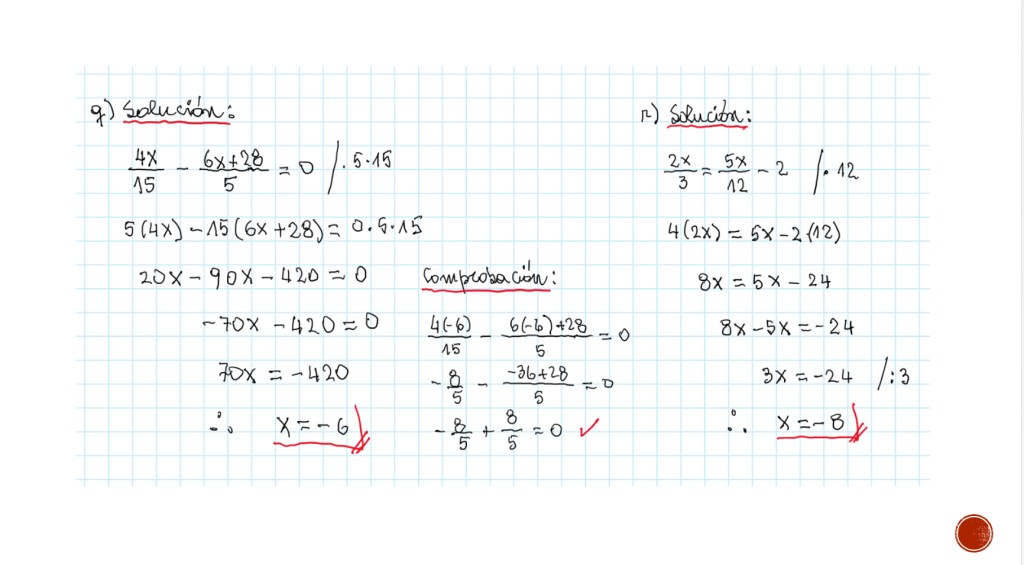 q) Solución:
4x/15 - 6x+28/5 = 0 /· 5·15
5(4x) - 15(6x+28) = 0·5·15
20x - 90x - 420 = 0
-70x - 420 = 0
70x = -420
∴ x = -6
Comprobación:
4(-6)/15 - 6(-6)+28/5 = 0
-8/5 - -36+28/5 = 0
-8/5 + 8/5 = 0 ✓
r) Solución:
2x/3 = 5x/12 - 2 /· 12
4(2x) = 5x - 2(12)
8x = 5x - 24
8x - 5x = -24
3x = -24 /:3
∴ x = -8